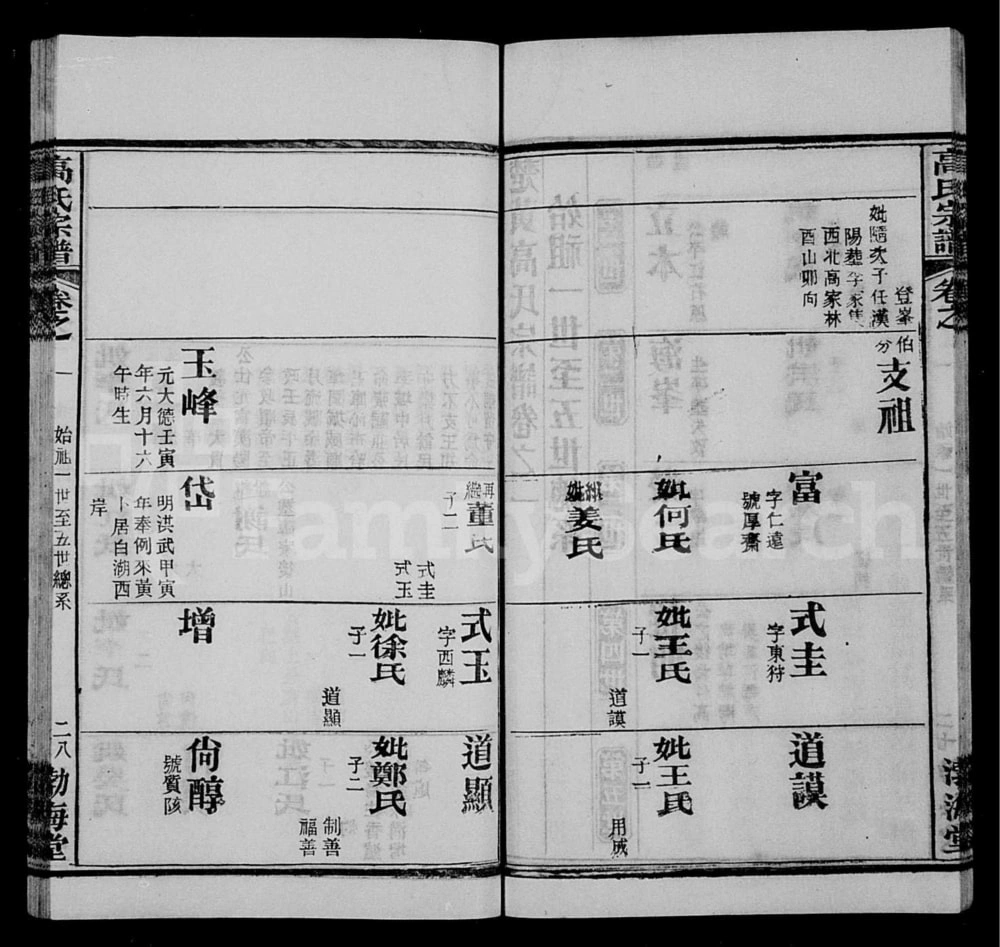 高氏宗譜
卷之一
渤海堂
妣隨次子任漢
陽葬李家集
西北高家林
酉山卯向
登峯伯
分
支祖
富
字仁遠
號厚齋
妣何氏
繼妣姜氏
式圭
字東狩
妣王氏
子一
道謨
道謨
妣王氏
子一
用威
再繼董氏
子二
式圭
式玉
式玉
字西麟
妣徐氏
子一
道顯
道顯
妣鄭氏
子二
制善
福善
玉峰
元大德壬寅
年六月十六
午時生
岱
明洪武甲寅
年奉例來黃
卜居白湖西
岸
增
尙醇
號質陔
高氏宗譜
卷之一
一
始祖一世至五世總系
二八
勃海堂